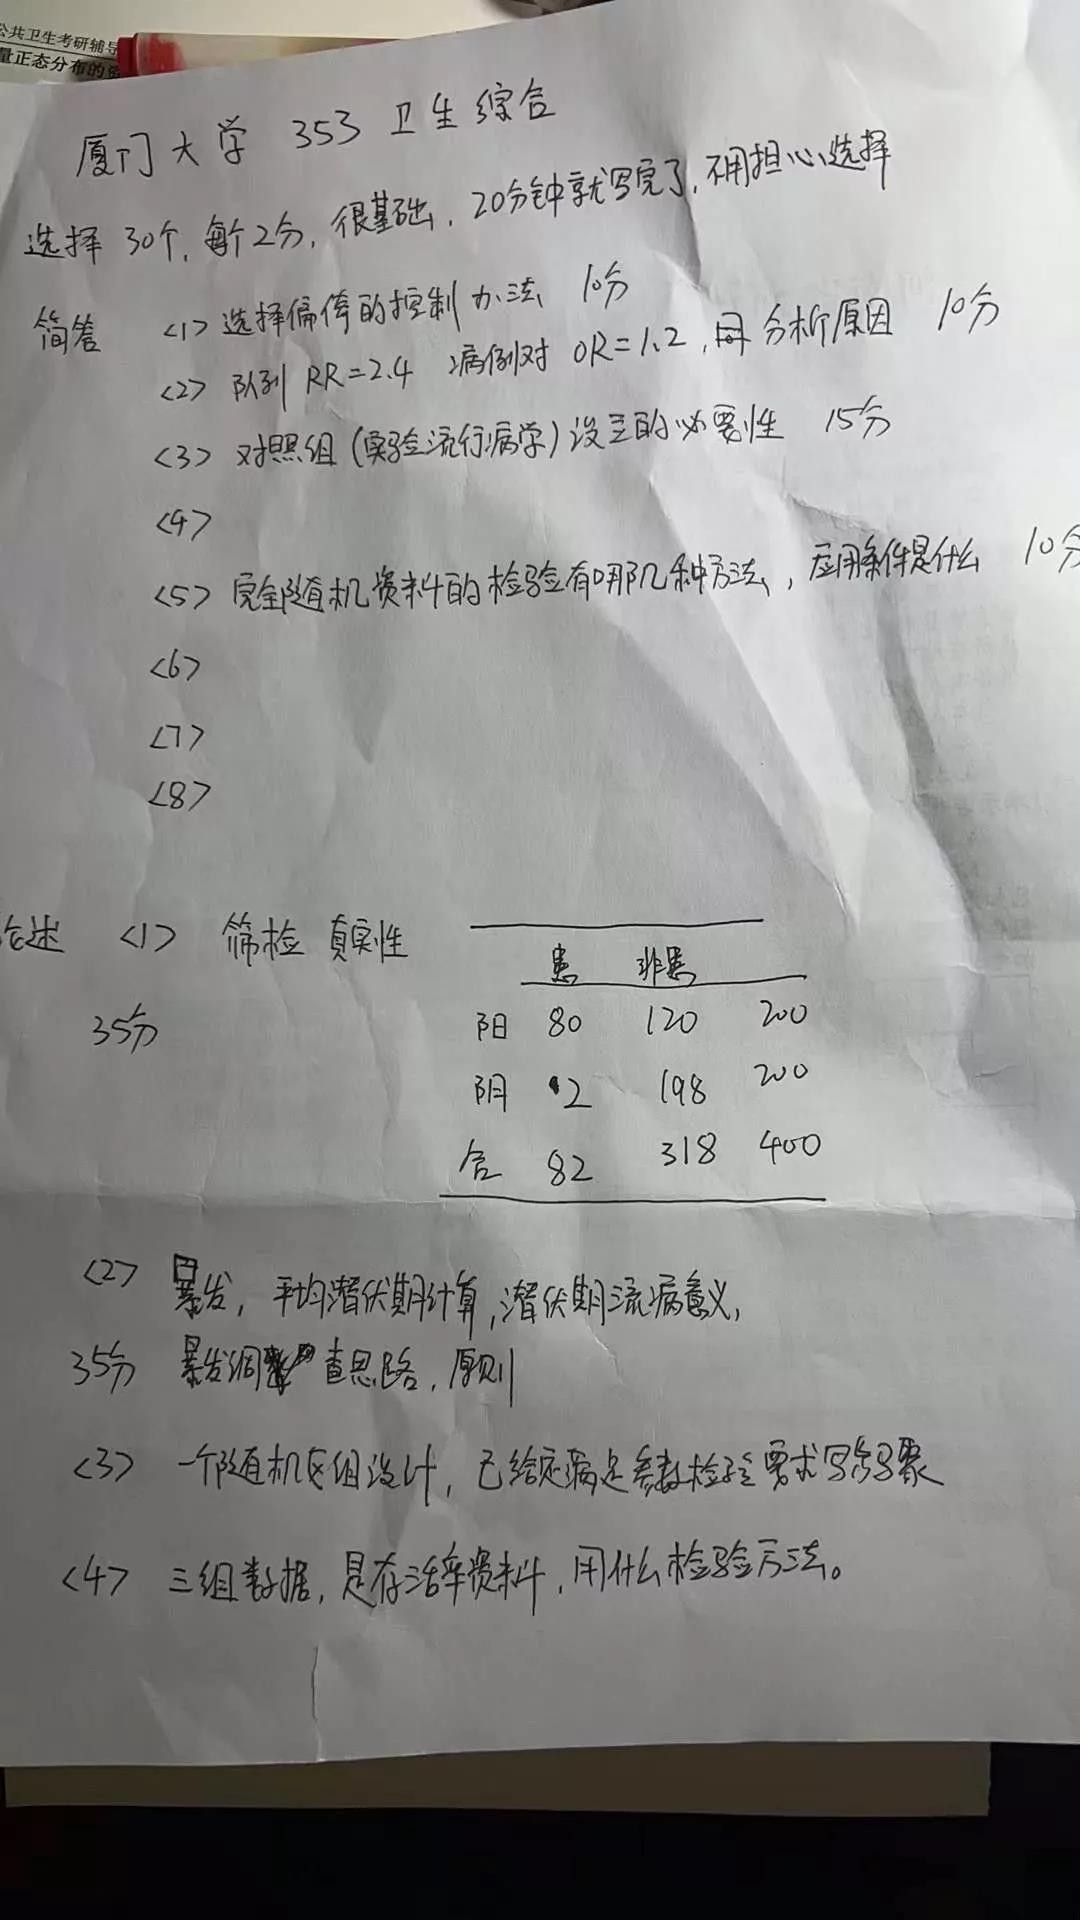 公共卫生考研辅导
量正态分布的资
厦门大学 353 卫生综合
选择 30个, 每个2分, 很基础, 20分钟就写完了, 不用担心选择
简答 <1> 选择偏倚的控制办法 10分
<2> 队列 RR=2.4 病例对 OR=1.2, 问 分析原因 10分
<3> 对照组 (实验流行病学) 设立的必要性 15分
<4>
<5> 完全随机资料的检验有哪几种方法, 应用条件是什么 10分
<6>
<7>
<8>
论述 <1> 筛检 真实性
35分
患 非患
阳 80 120 200
阴 2 198 200
合 82 318 400
<2> 暴发, 平均潜伏期计算, 潜伏期流病意义,
35分 暴发调查思路, 原则
<3> 一个随机区组设计, 已给定满足参数检验要求写步骤
<4> 三组数据, 是存活率资料, 用什么检验方法。